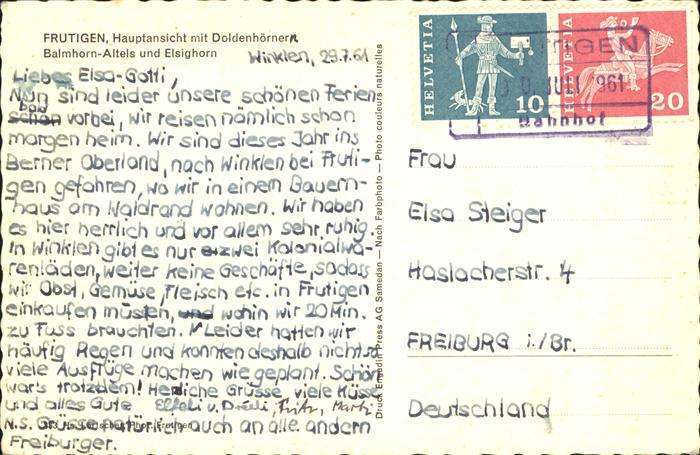 FRUTIGEN, Hauptansicht mit Doldenhörnern
Balmhorn-Altels und Elsighorn
Winklen, 29.7.61
Liebes Elsa-Gotti,
Nun sind leider unsere schönen Ferien
bald
schon vorbei, wir reisen nämlich schon
morgen heim. Wir sind dieses Jahr ins
Berner Oberland, nach Winklen bei Fruti-
gen gefahren, wo wir in einem Bauern-
haus am Waldrand wohnen. Wir haben
es hier herrlich und vor allem sehr ruhig.
In Winklen gibt es nur zwei Kolonialwa-
renläden, weiter keine Geschäfte, sodass
wir Obst, Gemüse, Fleisch etc. in Frutigen
einkaufen müssten, und wohin wir 20 Min.
zu Fuss brauchten. Leider hatten wir
häufig Regen und konnten deshalb nicht so
viele Ausflüge machen wie geplant. Schön
war's trotzdem! Herzliche Grüsse, viele Küsse
und alles Gute Fritz,
N.S. Grüsse natürlich auch an alle andern
Freiburger.
Druck Engadin Press AG Samedan — Nach Farbphoto — Photo couleurs naturelles
HELVETIA
10
HELVETIA
20
FRUTIGEN
JULI 1961
Bahnhof
Frau
Elsa Steiger
Haslacherstr. 4
FREIBURG i./Br.
Deutschland